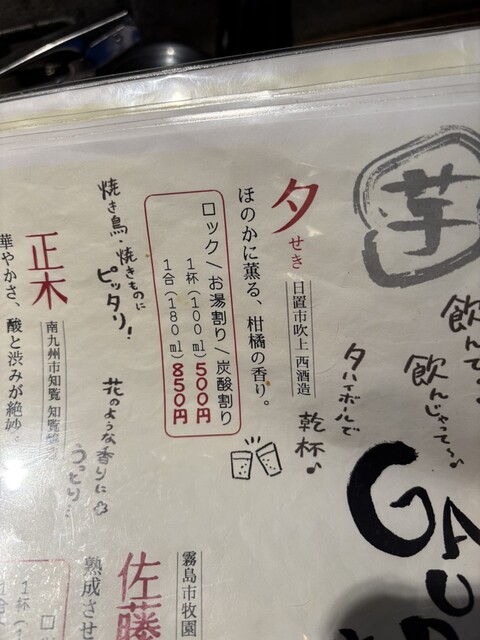 芋
飲んで
飲んじゃって〜♪
GAU
夕
せき
日置市吹上 西酒造
ほのかに薫る、柑橘の香り。
タハイボールで
乾杯♪
ロック/お湯割り/炭酸割り
1杯(100ml)500円
1合(180ml)850円
焼き鳥・焼きものに
ピッタリ!
正木
南九州市知覧 知覧醸造
華やかさ、酸と渋みが絶妙。
花のような香りに
うっとり…
霧島市牧園
佐藤
熟成させ
ロ
1杯(1